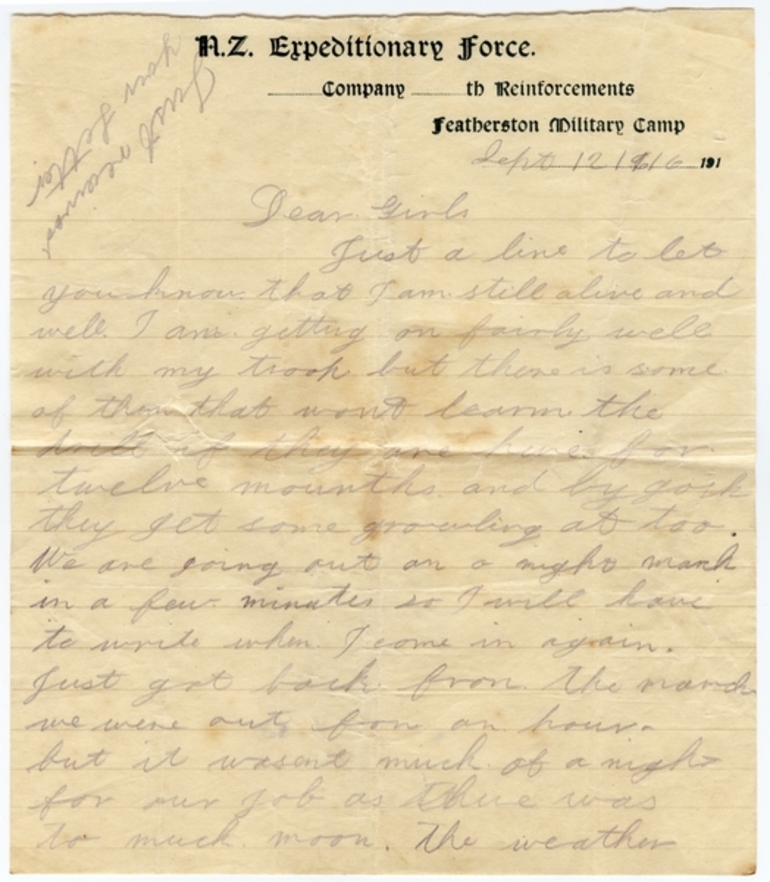 N.Z. Expeditionary Force.
Company th Reinforcements
Featherston Military Camp
Sept 12 1916 191
Just received
your letter
Dear Girls
Just a line to let
you know that I am still alive and
well. I am getting on fairly well
with my troop but there is some
of them that wont learn the
drill if they are here for
twelve mounths and by gosh
they get some growling at too.
We are going out on a night march
in a few minutes so I will have
to write when I come in again.
Just got back from the march
we were out for an hour.
but it wasent much of a night
for our job as there was
to much moon. The weather